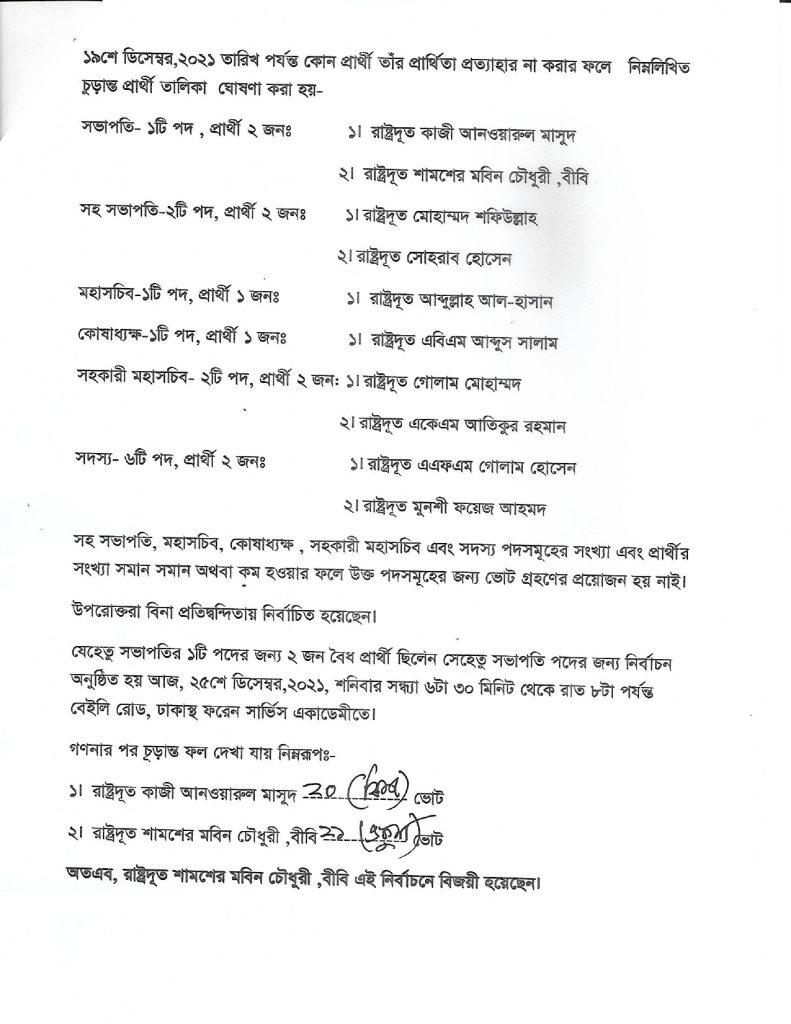 ১৯শে ডিসেম্বর,২০২১ তারিখ পর্যন্ত কোন প্রার্থী তাঁর প্রার্থিতা প্রত্যাহার না করার ফলে নিম্নলিখিত
চুড়ান্ত প্রার্থী তালিকা ঘোষণা করা হয়-
সভাপতি- ১টি পদ , প্রার্থী ২ জনঃ ১। রাষ্ট্রদূত কাজী আনওয়ারুল মাসুদ
২। রাষ্ট্রদূত শামশের মবিন চৌধুরী ,বীবি
সহ সভাপতি-২টি পদ, প্রার্থী ২ জনঃ ১। রাষ্ট্রদূত মোহাম্মদ শফিউল্লাহ
২। রাষ্ট্রদূত সোহরাব হোসেন
মহাসচিব-১টি পদ, প্রার্থী ১ জনঃ ১। রাষ্ট্রদূত আব্দুল্লাহ আল-হাসান
কোষাধ্যক্ষ-১টি পদ, প্রার্থী ১ জনঃ ১। রাষ্ট্রদূত এবিএম আব্দুস সালাম
সহকারী মহাসচিব- ২টি পদ, প্রার্থী ২ জন: ১। রাষ্ট্রদূত গোলাম মোহাম্মদ
২। রাষ্ট্রদূত একেএম আতিকুর রহমান
সদস্য- ৬টি পদ, প্রার্থী ২ জনঃ ১। রাষ্ট্রদূত এএফএম গোলাম হোসেন
২। রাষ্ট্রদূত মুনশী ফয়েজ আহমদ
সহ সভাপতি, মহাসচিব, কোষাধ্যক্ষ , সহকারী মহাসচিব এবং সদস্য পদসমূহের সংখ্যা এবং প্রার্থীর
সংখ্যা সমান সমান অথবা কম হওয়ার ফলে উক্ত পদসমূহের জন্য ভোট গ্রহণের প্রয়োজন হয় নাই।
উপরোক্তরা বিনা প্রতিদ্বন্দিতায় নির্বাচিত হয়েছেন।
যেহেতু সভাপতির ১টি পদের জন্য ২ জন বৈধ প্রার্থী ছিলেন সেহেতু সভাপতি পদের জন্য নির্বাচন
অনুষ্ঠিত হয় আজ, ২৫শে ডিসেম্বর,২০২১, শনিবার সন্ধ্যা ৬টা ৩০ মিনিট থেকে রাত ৮টা পর্যন্ত
বেইলি রোড, ঢাকাস্থ ফরেন সার্ভিস একাডেমীতে।
গণনার পর চুড়ান্ত ফল দেখা যায় নিম্নরূপঃ-
১। রাষ্ট্রদূত কাজী আনওয়ারুল মাসুদ ২০ (বিশ) ভোট
২। রাষ্ট্রদূত শামশের মবিন চৌধুরী ,বীবি ২১ (একুশ) ভোট
অতএব, রাষ্ট্রদূত শামশের মবিন চৌধুরী ,বীবি এই নির্বাচনে বিজয়ী হয়েছেন।